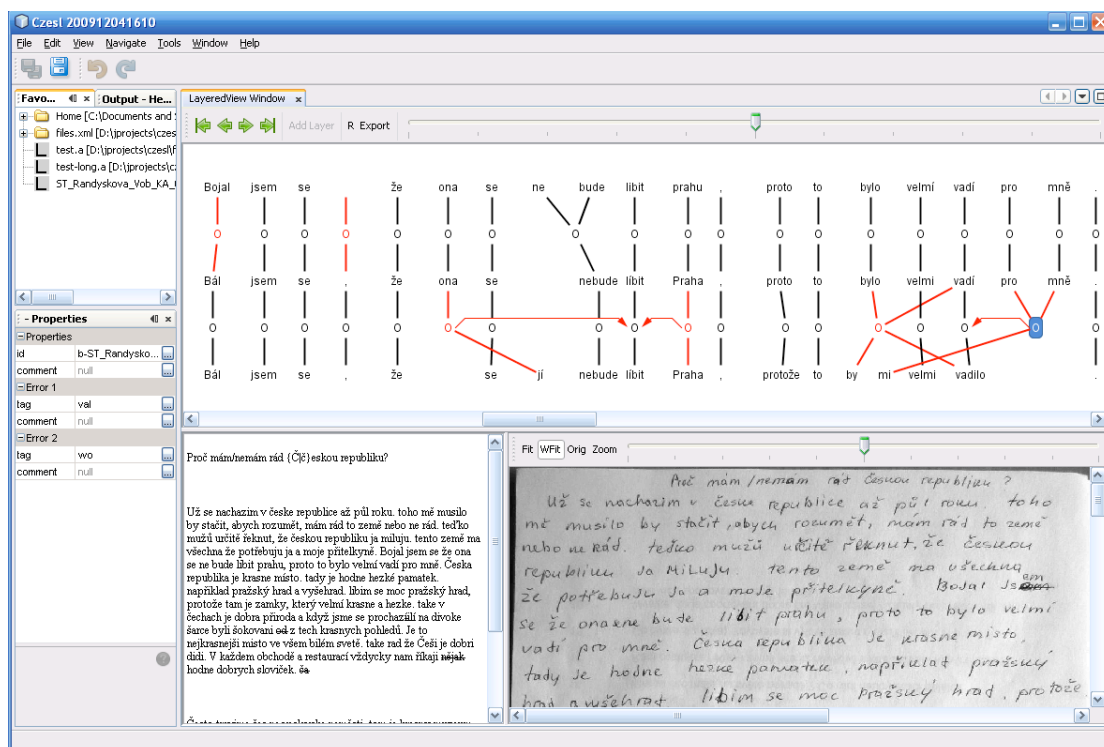 Czesl 200912041610
File Edit View Navigate Tools Window Help
Favo... Output - He...
Home [C:\Documents and S
files.xml [D:\jprojects\czes
test.a [D:\jprojects\czesl\f
test-long.a [D:\jprojects\cz
ST_Randyskova_Vob_KA_
LayeredView Window
Add Layer R Export
Bojal jsem se že ona se ne bude libit prahu , proto to bylo velmí vadí pro mně .
O O O O O O O O O O O O O O O O O O
Bál jsem se , že ona se nebude líbit Praha , proto to bylo velmi vadí pro mně .
O O O O O O O O O O O O O O O O O
Bál jsem se , že se jí nebude líbit Praha , protože to by mi velmi vadilo .
- Properties
Properties
id b-ST_Randysko...
comment null
Error 1
tag val
comment null
Error 2
tag wo
comment null
Proč mám/nemám rád {Č|č}eskou republiku?
Už se nachazim v česke republice až půl roku. toho mě musilo
by stačit, abych rozumět, mám rád to země nebo ne rád. teďko
mužů určitě řeknut, že českou republiku ja miluju. tento země ma
všechna že potřebuju ja a moje přitelkyně. Bojal jsem se že ona
se ne bude libit prahu, proto to bylo velmí vadí pro mně. Česka
republika je krasne místo. tady je hodne hezké pamatek.
například pražský hrad a vyšehrad. libim se moc pražský hrad,
protože tam je zamky, který velmí krasne a hezke. take v
čechach je dobra přiroda a když jsme se
šarce byli šokovani od z tech krasnych pohledů. Je to
nejkrasnejší misto ve všem bilém svetě. take rad že Češi je dobri
didi. V každem obchodě a restaurací vždycky nam říkaji nějak
hodne dobrych slovíček. ča
Fit WFit Orig Zoom
Proč mám/nemám rád Českou republiku ?
Už se nachazim v česke republice až půl roku. toho
mě musilo by stačit, abych rozumět, mám rád to země
nebo ne rád. teďko mužů určitě řeknut, že českou
republiku ja miluju. tento země ma všechna
že potřebuju ja a moje přitelkyně. Bojal jsem
se že ona ne bude libit prahu, proto to bylo velmí
vadí pro mně. Česka republika je krasne místo.
tady je hodne hezké pamatek, napřiklat pražský
hrad a vyšehrad libim se moc pražský hrad, protože